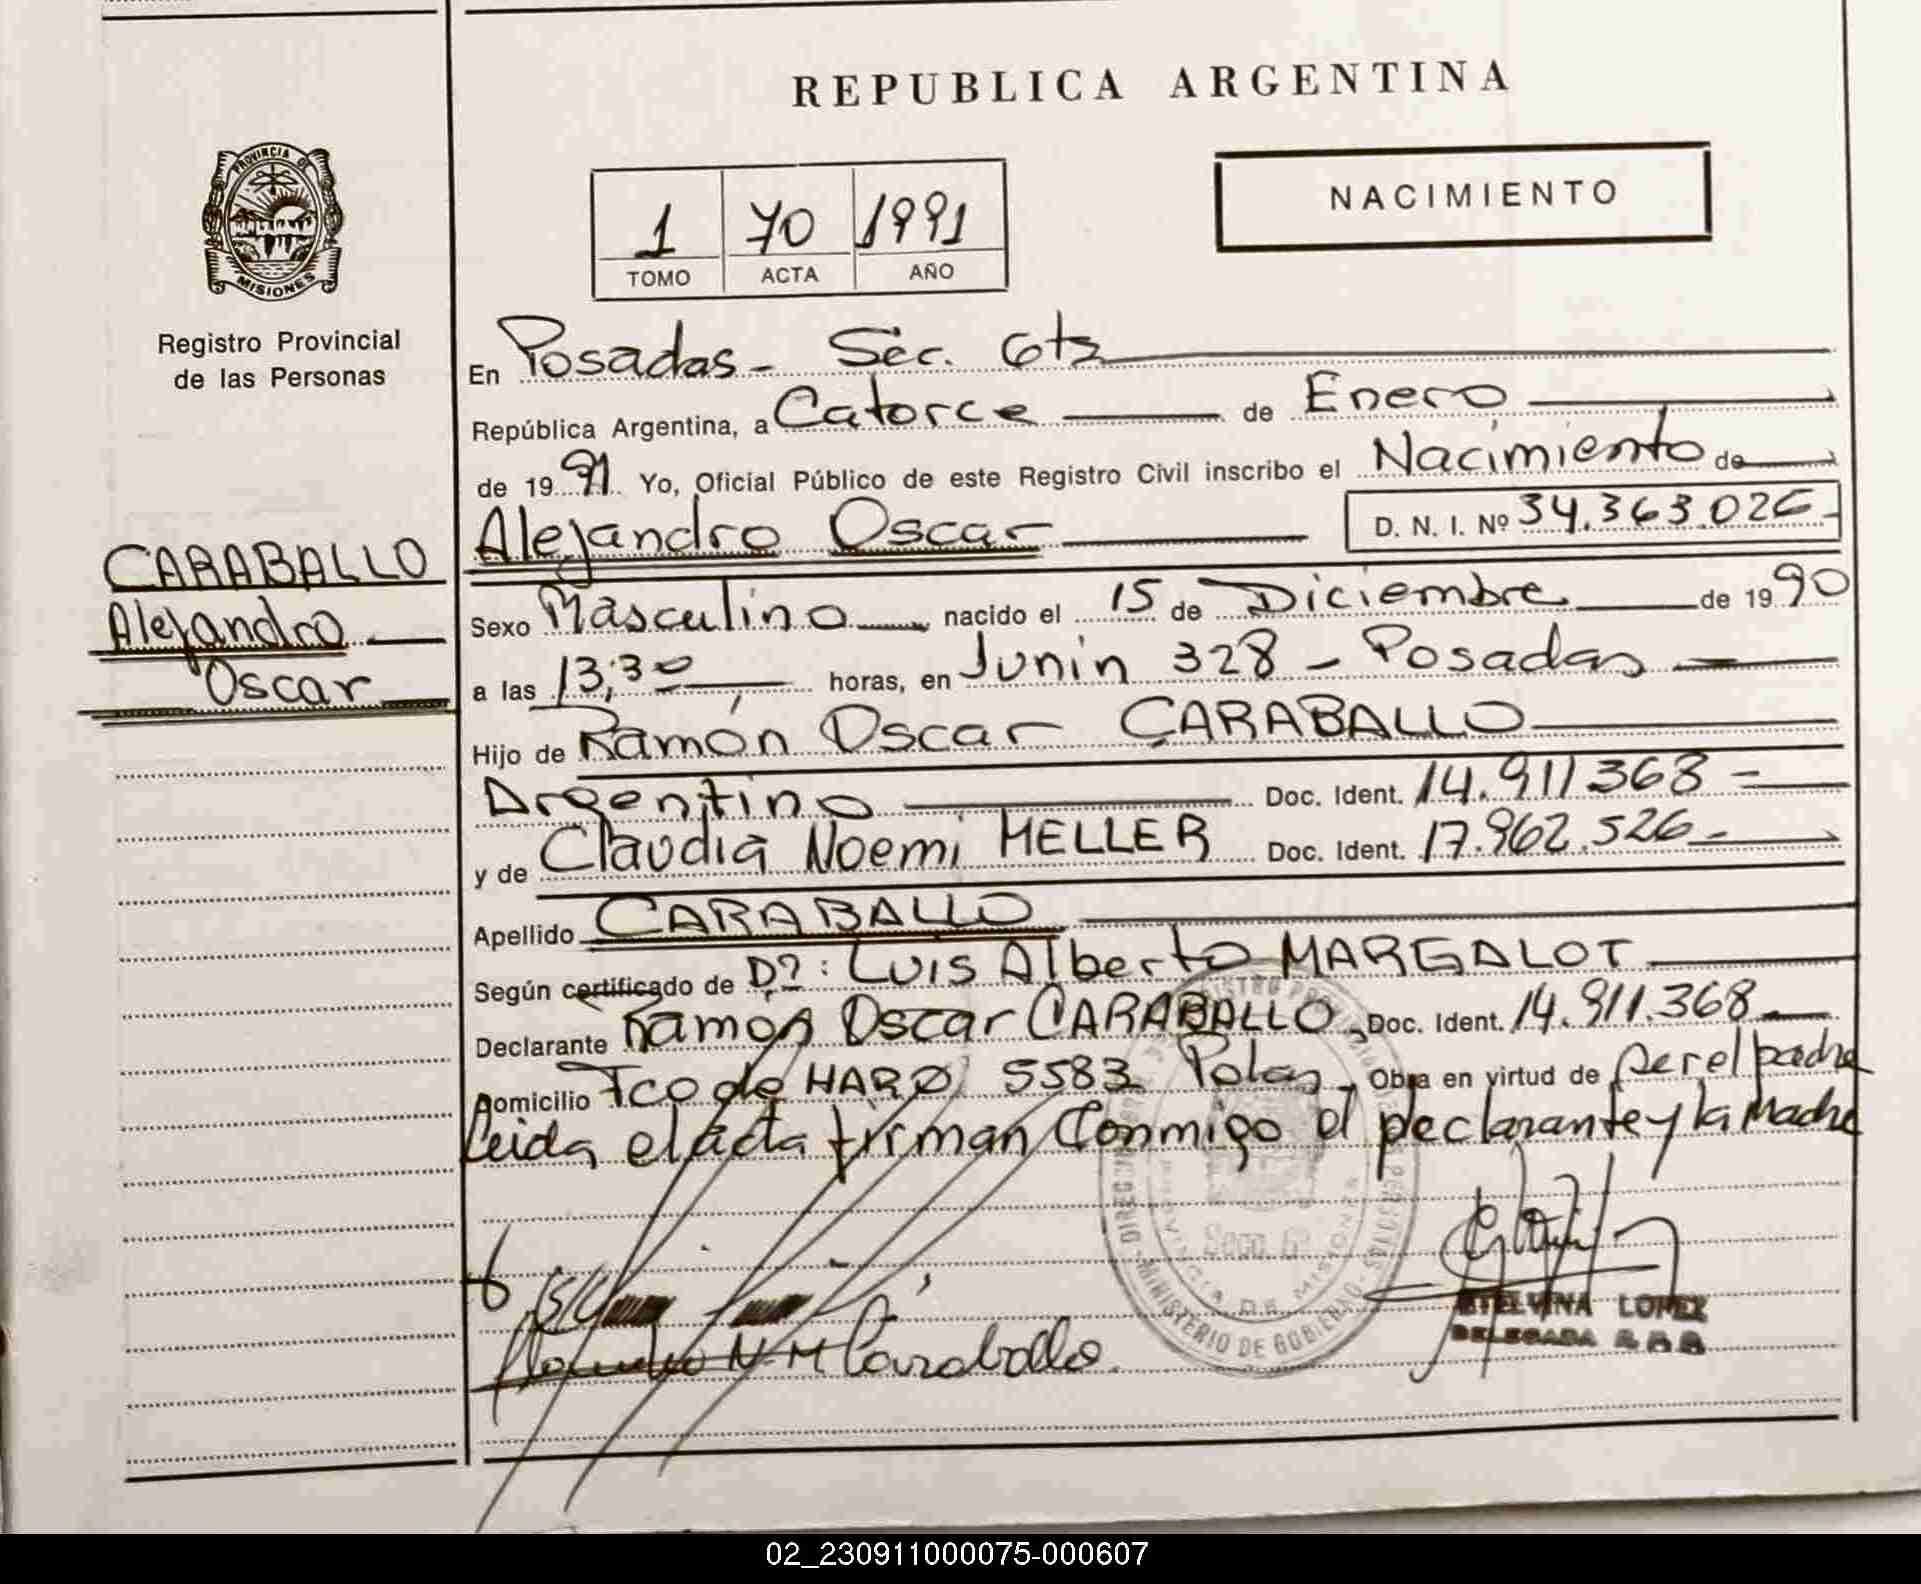 REPUBLICA ARGENTINA
PROVINCIA DE
MISIONES
NACIMIENTO
1 70 1991
TOMO ACTA AÑO
Registro Provincial
de las Personas
En Posadas - Sec. 6ta
República Argentina, a Catorce de Enero
de 1991. Yo, Oficial Público de este Registro Civil inscribo el Nacimiento de
Alejandro Oscar D. N. I. Nº 34.363.026-
CARABALLO
Alejandro
Oscar
Sexo Masculino nacido el 15 de Diciembre de 1990
a las 13,30 horas, en Junin 328 - Posadas
Hijo de Ramón Oscar CARABALLO
Argentino Doc. Ident. 14.911368 -
y de Claudia Noemi MELLER Doc. Ident. 17.962.526-
Apellido CARABALLO
Según certificado de Dr: Luis Alberto MARGALOT
Declarante Ramón Oscar CARABALLO, Doc. Ident. 14.911.368
Domicilio Fco de HARO 5583 Obra en virtud de ser el padre
Leida el acta firman Conmigo el declarante y la madre
REGISTRO PROVINCIAL DE LAS PERSONAS
MINISTERIO DE GOBIERNO
PROVINCIA DE MISIONES
Secc. 6
Caraballo
LOPEZ
DELEGADA
02_230911000075-000607